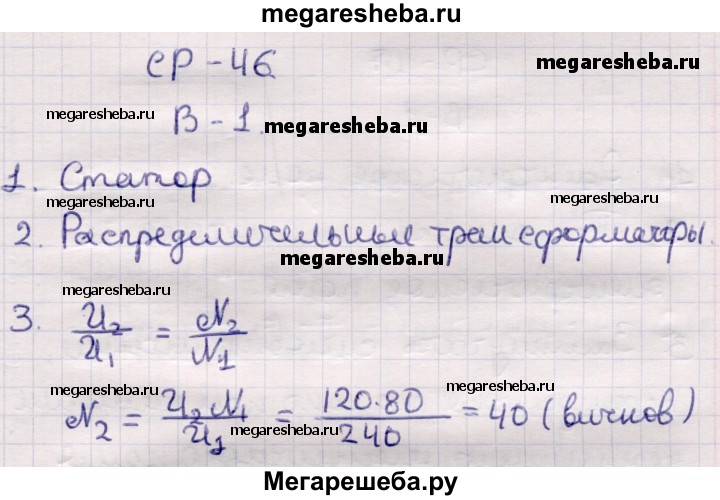 megaresheba.ru
СР-46
megaresheba.ru
megaresheba.ru
В-1.
megaresheba.ru
1. Статор
megaresheba.ru
megaresheba.ru
2. Распределительные трансформаторы.
megaresheba.ru
megaresheba.ru
3. U₂/U₁ = N₂/N₁
megaresheba.ru
megaresheba.ru
N₂ = U₂N₁/U₁ = 120·80/240 = 40 (витков)
megaresheba.ru
Мегарешеба.ру